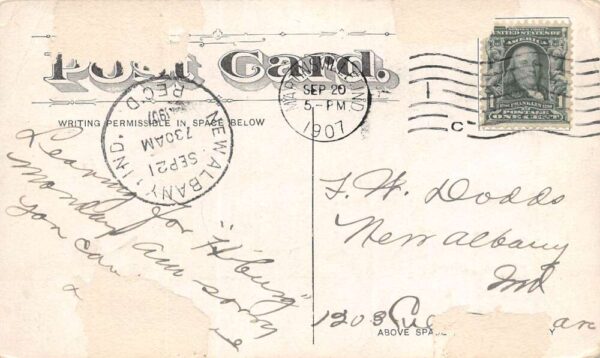 Post Card.
WRITING PERMISSIBLE IN SPACE BELOW
NEW ALBANY, IND.
REC'D
1907
7 30 AM
SEP 21
IND
SEP 20
5-PM
1907
C
1
UNITED STATES OF AMERICA
FRANKLIN
1 1
POSTAGE
ONE CENT
Leaving for "H'burg"
Monday am sorry
you can
&
F. W. Dodds
New albany
Ind
1203
ABOVE